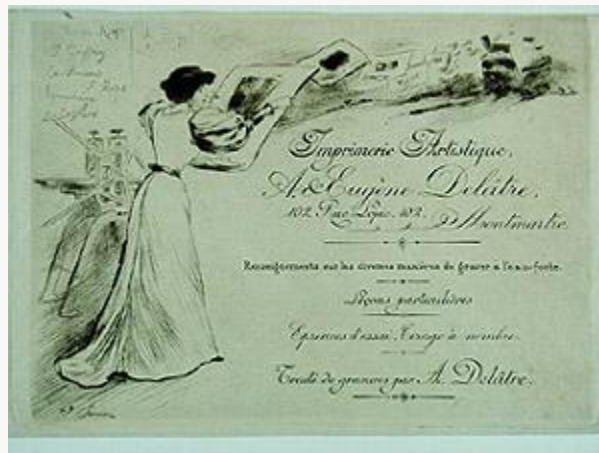 Imprimerie Artistique.
A. & Eugène Delâtre.
102. Rue Lepic. 102. Montmartre.
Renseignements sur les diverses manières de graver à l'eau-forte.
Leçons particulières
Epreuves d'essai, Tirage à nombre.
Traité de gravures par A. Delâtre.